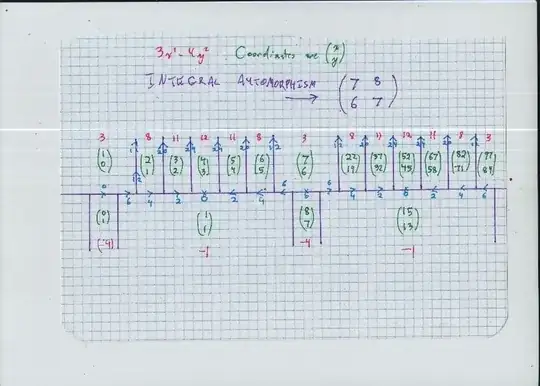 3x² - 4y² Coordinates are (x y)
INTEGRAL AUTOMORPHISM → (7 8 6 7)
3 8 11 12 11 8 3 8 11 12 11 8 3
(1 0) (2 1) (3 2) (4 3) (5 4) (6 5) (7 6) (22 19) (37 32) (52 45) (67 58) (82 71) (97 84)
0 6 4 2 0 2 4 6 0 6 4 2 0 2 4 6
(0 1) (1 1) (8 7) (15 13)
-4 -1 -4 -1